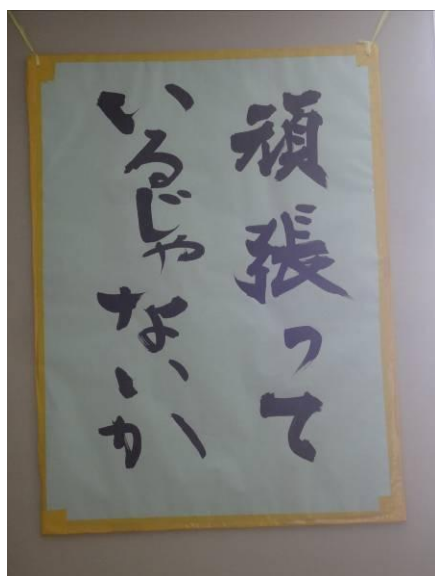 頑張って
いるじゃないか